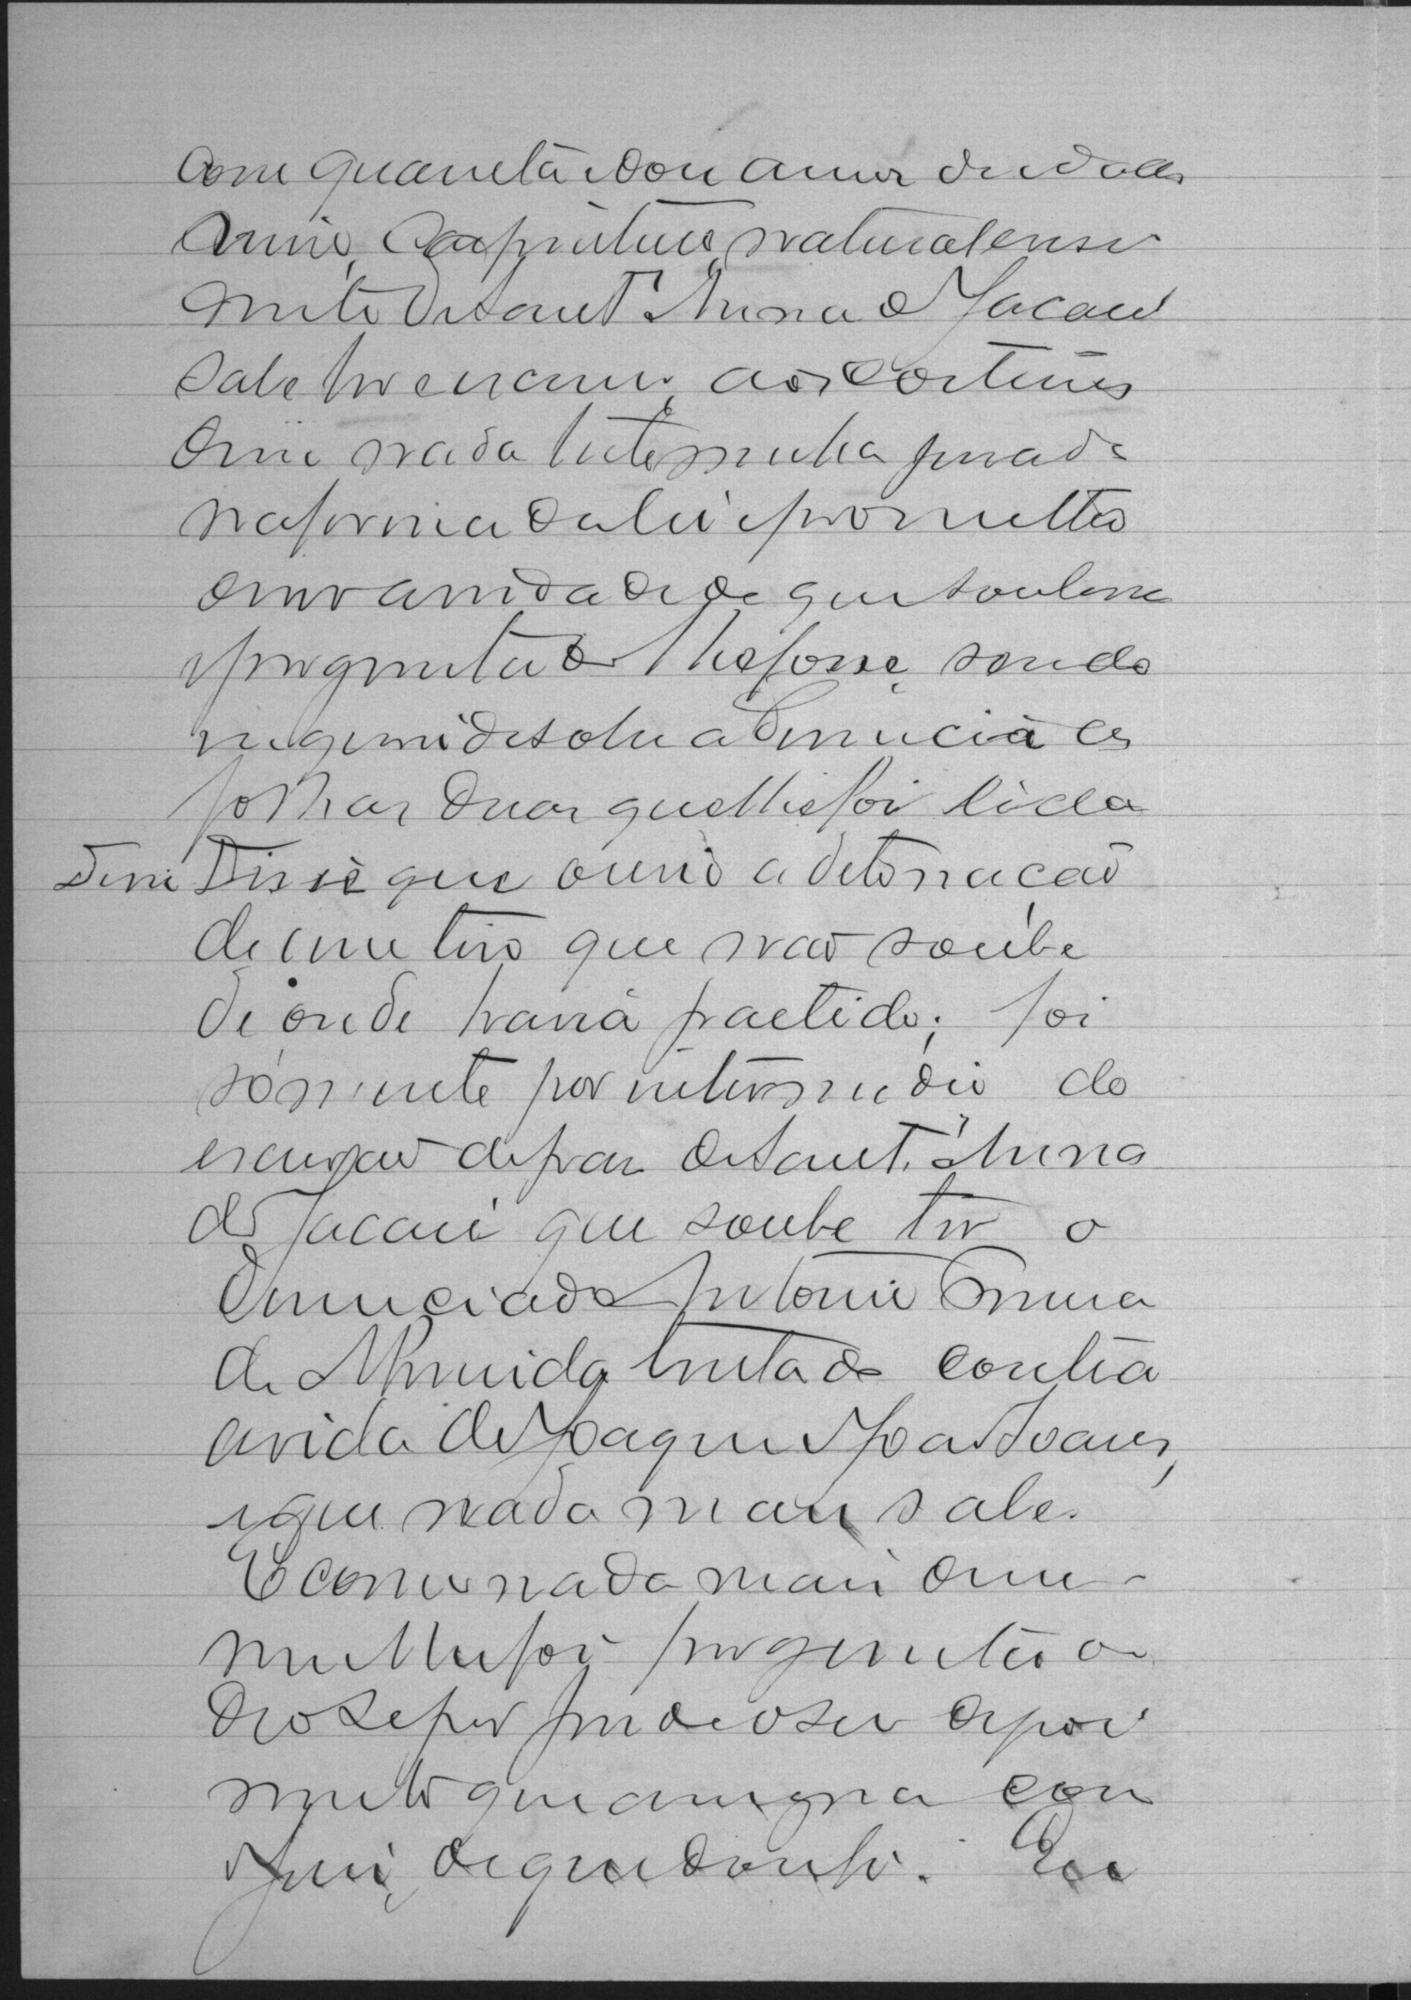 com quarenta e dous annos de idade
viuvo, Carpinteiro, natural e resi
dente de Sant'Anna de Jacaré
sabe ler e escrever, aos costumes
disse nada testemunha jurada
na forma da lei e prometteo
dizer a verdade do que soubesse
e perguntado lhe fosse, sendo
inquerida sobre a denuncia as
folhas duas que lhe foi lida
Disse que ouvio a detonação
de um tiro que não soube
de onde havia partido; foi
sómente por intermedio do
escrivão de paz de Sant'Anna
do Jacaré que soube ter o
denunciado Antonio
de Almeida tentado contra
a vida de Joaquim Soares,
e que nada mais sabe.
E como nada mais disse
nem lhe foi perguntado
deo-se por findo o seu depoi
mento que assigna com
o Juiz, de que dou fé. Eu